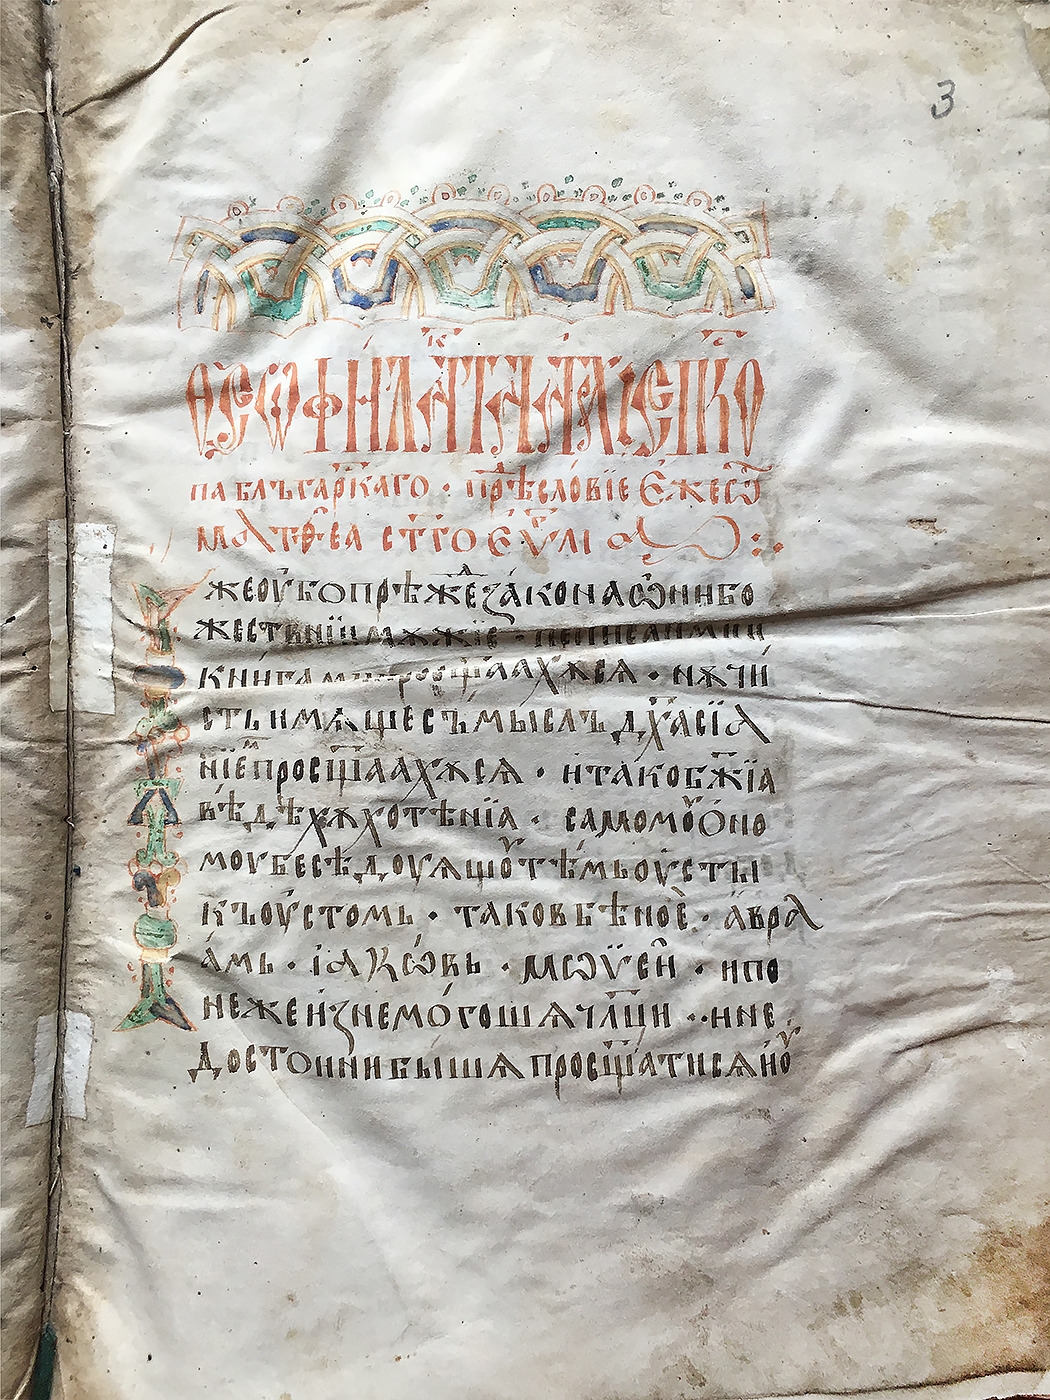 3
ѲЕОФИЛАКТА АРХІЕПⷭКО
ПА БЛЪГАРⷭКАГО · ПРѢⷣСЛОВЇЕ Е҆ЖЕ Ѿ
МАТѲЕА СТ҃ГО ЕѴⷢЛІА
ЖЕ ОУ҆БО ПРѢЖⷣЕ ЗАКОНА Ѡ҆НИ БО
ЖЕСТВНЇИ МѪЖЇЕ · НЕ ПИСАНМИ И
КНИГАМИ ПРОСЩ҃ААХѪСѦ · НѪ ЧИ
СТЬ ИМѪЩЕ СЪМЫСЛЪ Д҃ХА СЇА
НЇЕⷨ ПРОСЩ҃ААХѪСѦ · И ТАКО Б҃ЖЇА
ВѢДѢХѪ ХОТѢНЇА · САМОМОУ҆ О҆НО
МОУ БЕСѢДОУѪЩОУ҆ ТѢМЬ ОУ҆СТЫ
КЪ ОУ҆СТОМЬ · ТАКОВ БѢ НОЕ · А҆ВРА
А҆МЬ · І҆АКѠВЬ · МѠѴСИ · И ПО
НЕЖЕ И҆ЗНЕМОГОШѦ ЧЛ҃ЦИ · И НЕ
ДОСТОИНИ БЫШѦ ПРОСЩ҃АТИСѦ И ОУ҆